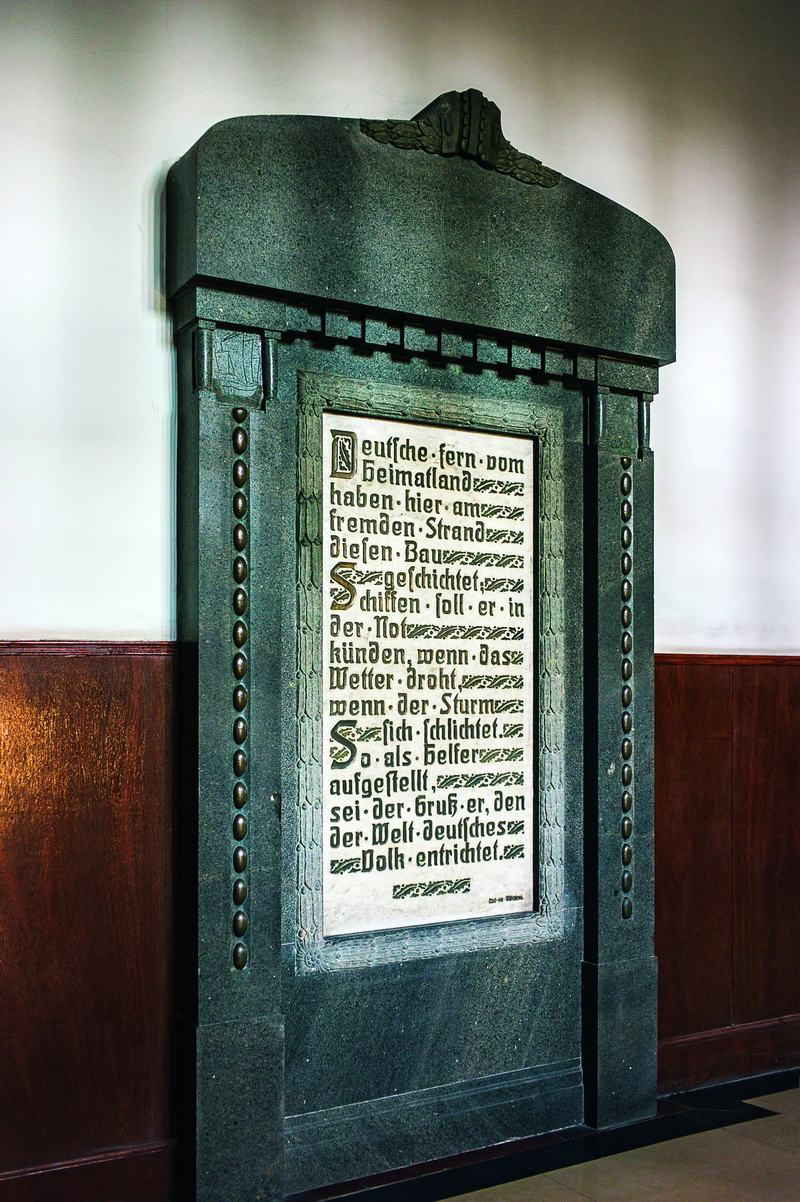 Deutsche·fern·vom
Heimatland
haben·hier·am
fremden·Strand
diesen·Bau
geschichtet;
Schiffen·soll·er·in
der·Not
künden, wenn·das
Wetter·droht,
wenn·der·Sturm
sich·schlichtet.
So·als·Helfer
aufgestellt,
sei·der·Gruß·er, den
der·Welt·deutsches
Volk·entrichtet.